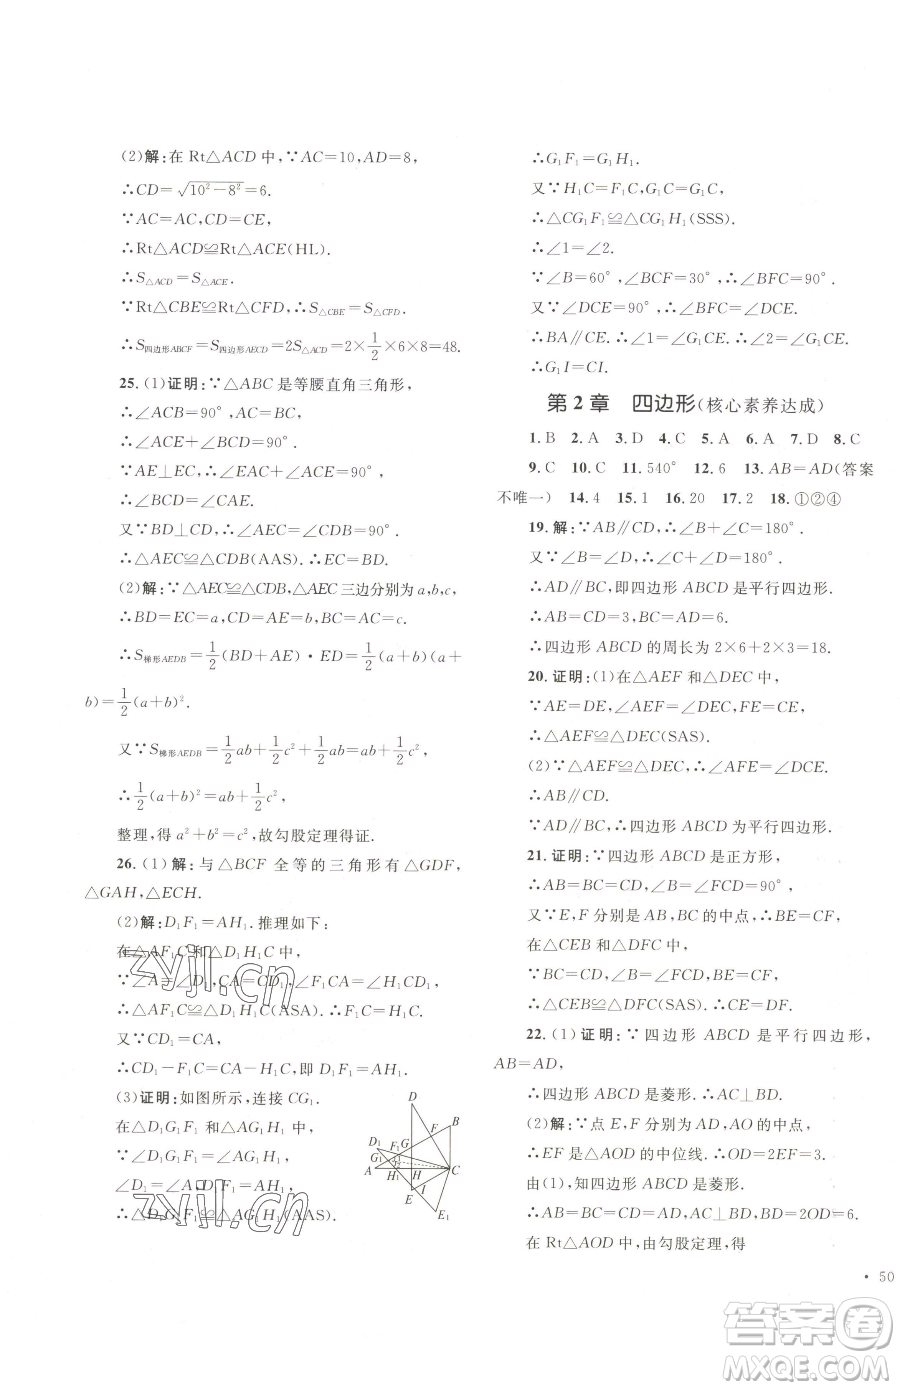 (2)解:在 Rt△ACD 中,∵AC=10,AD=8,
∴CD=√(10²-8²)=6.
∵AC=AC,CD=CE,
∴Rt△ACD≌Rt△ACE(HL).
∴S△ACD=S△ACE.
∵Rt△CBE≌Rt△CFD,∴S△CBE=S△CFD.
∴S四边形ABCF=S四边形AECD=2S△ACD=2×1/2×6×8=48.
25.(1)证明:∵△ABC是等腰直角三角形,
∴∠ACB=90°,AC=BC.
∴∠ACE+∠BCD=90°.
∵AE⊥EC,∴∠CAE+∠ACE=90°.
∴∠BCD=∠CAE.
又∵BD⊥CD,∴∠AEC=∠CDB=90°.
∴△AEC≌△CDB(AAS).∴EC=BD.
(2)解:∵△AEC≌△CDB,△AEC三边分别为a,b,c.
∴BD=EC=a,CD=AE=b,BC=AC=c.
∴S梯形AEDB=1/2(BD+AE)·ED=1/2(a+b)(a+
b)=1/2(a+b)².
又∵S梯形AEDB=1/2ab+1/2c²+1/2ab=ab+1/2c²,
∴1/2(a+b)²=ab+1/2c²,
整理,得a²+b²=c²,故勾股定理得证.
26.(1)解:与△BCF全等的三角形有△GDF,
△GAH,△ECH.
(2)解:D₁F₁=AH₁.推理如下:
在△AF₁C和△D₁H₁C中,
∵∠A=∠D₁,CA=CD₁,∠F₁CA=∠H₁CD₁,
∴△AF₁C≌△D₁H₁C(ASA).∴F₁C=H₁C.
又∵CD₁=CA,
∴CD₁-F₁C=CA-H₁C,即D₁F₁=AH₁.
(3)证明:如图所示,连接CG₁.
在△D₁G₁F₁和△AG₁H₁中,
∵∠D₁G₁F₁=∠AG₁H₁,
∠D₁=∠A,D₁F₁=AH₁,
∴△D₁G₁F₁≌△AG₁H₁(AAS).
D
F
B
D₁
F₁
G
G₁
A
H₁
H
C
E
I
E₁
∴G₁F₁=G₁H₁.
又∵H₁C=F₁C,G₁C=G₁C,
∴△CG₁F₁≌△CG₁H₁(SSS).
∴∠1=∠2.
∵∠B=60°,∠BCF=30°,∴∠BFC=90°.
又∵∠DCE=90°,∴∠BFC=∠DCE.
∴BA∥CE.∴∠1=∠G₁CI.∴∠2=∠G₁CI.
∴G₁I=CI.
第2章 四边形(核心素养达成)
1.B 2.A 3.D 4.C 5.A 6.A 7.D 8.C
9.C 10.C 11.540° 12.6 13.AB=AD(答案
不唯一) 14.4 15.1 16.20 17.2 18.①②④
19.解:∵AB∥CD,∴∠B+∠C=180°.
又∵∠B=∠D,∴∠C+∠D=180°.
∴AD∥BC,即四边形ABCD是平行四边形.
∴AB=CD=3,BC=AD=6.
∴四边形ABCD的周长为2×6+2×3=18.
20.证明:(1)在△AEF和△DEC中,
∵AE=DE,∠AEF=∠DEC,FE=CE,
∴△AEF≌△DEC(SAS).
(2)∵△AEF≌△DEC,∴∠AFE=∠DCE.
∴AB∥CD.
∵AD∥BC,∴四边形ABCD为平行四边形.
21.证明:∵四边形ABCD是正方形,
∴AB=BC=CD,∠B=∠FCD=90°.
又∵E,F分别是AB,BC的中点,∴BE=CF.
在△CEB和△DFC中,
∵BC=CD,∠B=∠FCD,BE=CF,
∴△CEB≌△DFC(SAS).∴CE=DF.
22.(1)证明:∵四边形ABCD是平行四边形,
AB=AD,
∴四边形ABCD是菱形.∴AC⊥BD.
(2)解:∵点E,F分别为AD,AO的中点,
∴EF是△AOD的中位线.∴OD=2EF=3.
由(1),知四边形ABCD是菱形,
∴AB=BC=CD=AD=BD=2OD=6.
在Rt△AOD中,由勾股定理,得
· 50
zyjl.cn
zyjl.cn
答案圈
MXQE.COM